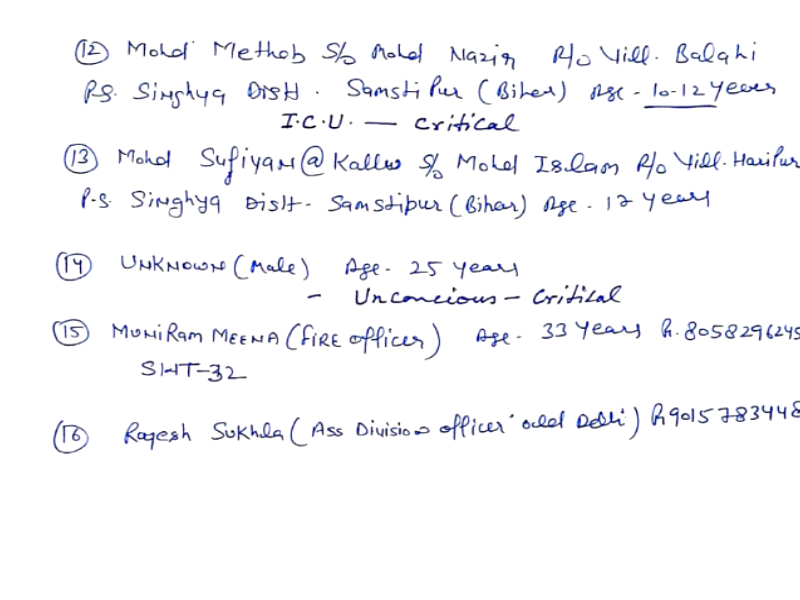 (12) Mohd Methob S/o Mohd Nazir R/o Vill. Balahi
P.S. Singhya Distt. Samstipur (Biher) Age - 10-12 Years
I.C.U. — Critical
(13) Mohd Sufiyan @ Kallu S/o Mohd Islam R/o Vill. Haripur
P.S. Singhya Distt- Samstipur (Bihar) Age - 17 years
(14) UNKNOWN (Male) Age - 25 years
- Unconcious - Critical
(15) MUNIRAM MEENA (FIRE officer) Age - 33 Years Ph. 8058296245
SHT-32
(16) Rajesh Sukhla (Ass Division officer Delhi) Ph 9015783448